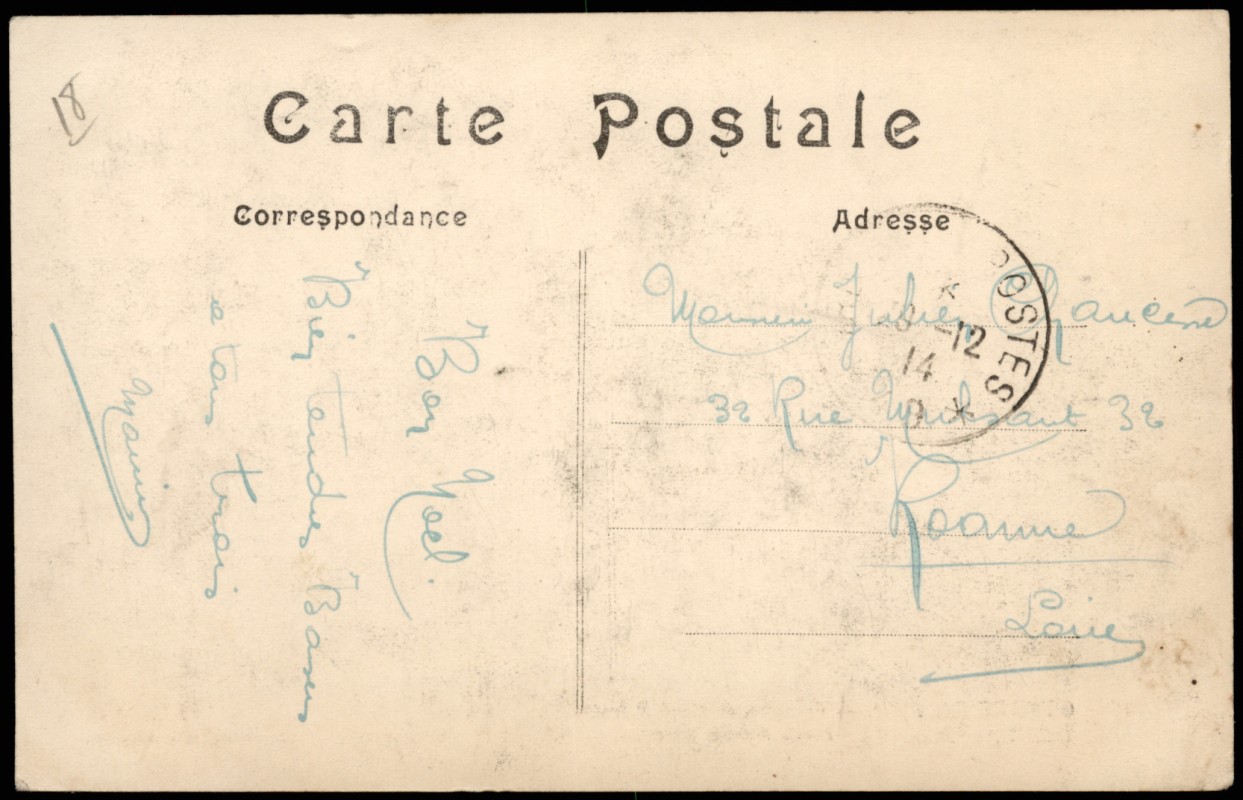 18
Carte Postale
Correspondance
Adresse
Bon Noel.
Bien tendres Baisers
a tous trois
POSTES
-12
14
Monsieur Julien
32 Rue Mulsant 32
Roanne
Loire